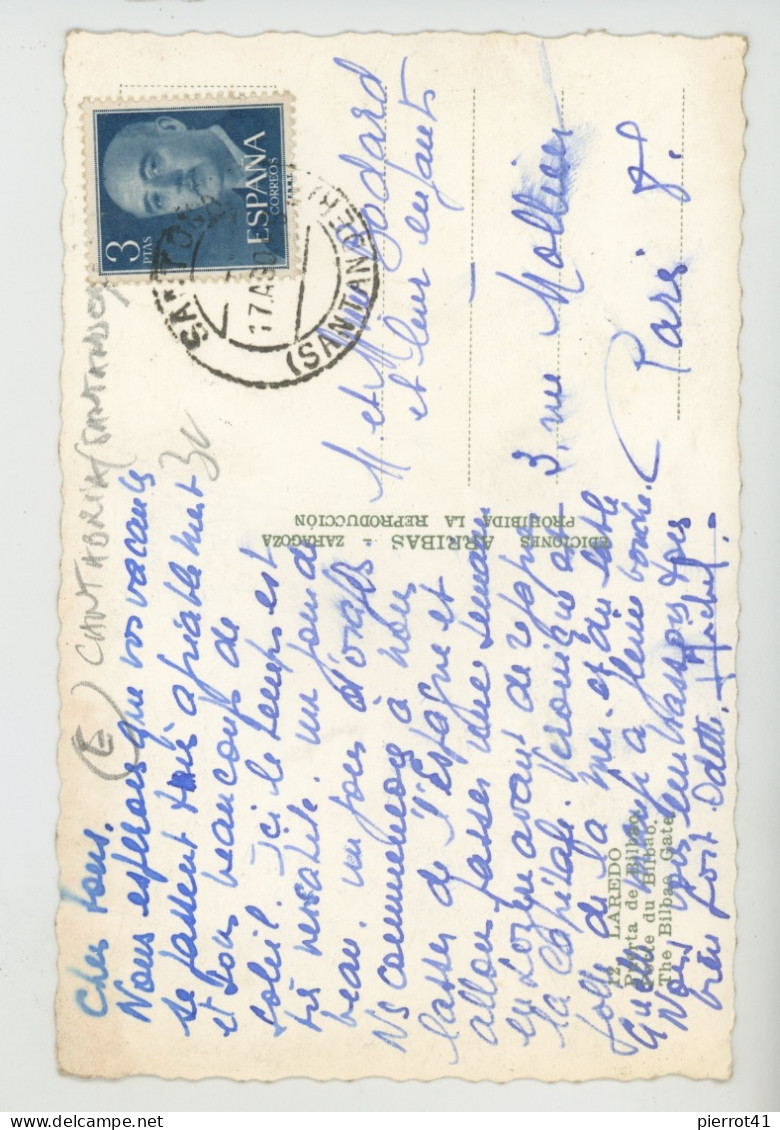 Chers tous.
Nous espérons que vos vacances
se passent très agréablement
et sous beaucoup de
soleil. Ici le temps est
très versatile. un jour de
beau. un jour d'orages
Ns commençons à nous
lasser de l'Espagne et
allons passer une semaine
en avant de
la capitale. Véronique a
de la mer et du sable
à pleine bouche.
Nous vous embrassons tous
bien fort. Odette. Michel.
M et Mme Godard
et leur enfants
3, rue Mollien
Paris 8.
12 LAREDO
Puerta de Bilbao.
Porte du Bilbao.
The Bilbao Gate
EDICIONES ARRIBAS - ZARAGOZA
PROHIBIDA LA REPRODUCCIÓN
3 PTAS
ESPAÑA
CORREOS
17 AGO
(SANTANDER)
(E) CANTABRIA (SANTANDER)
pierrot41